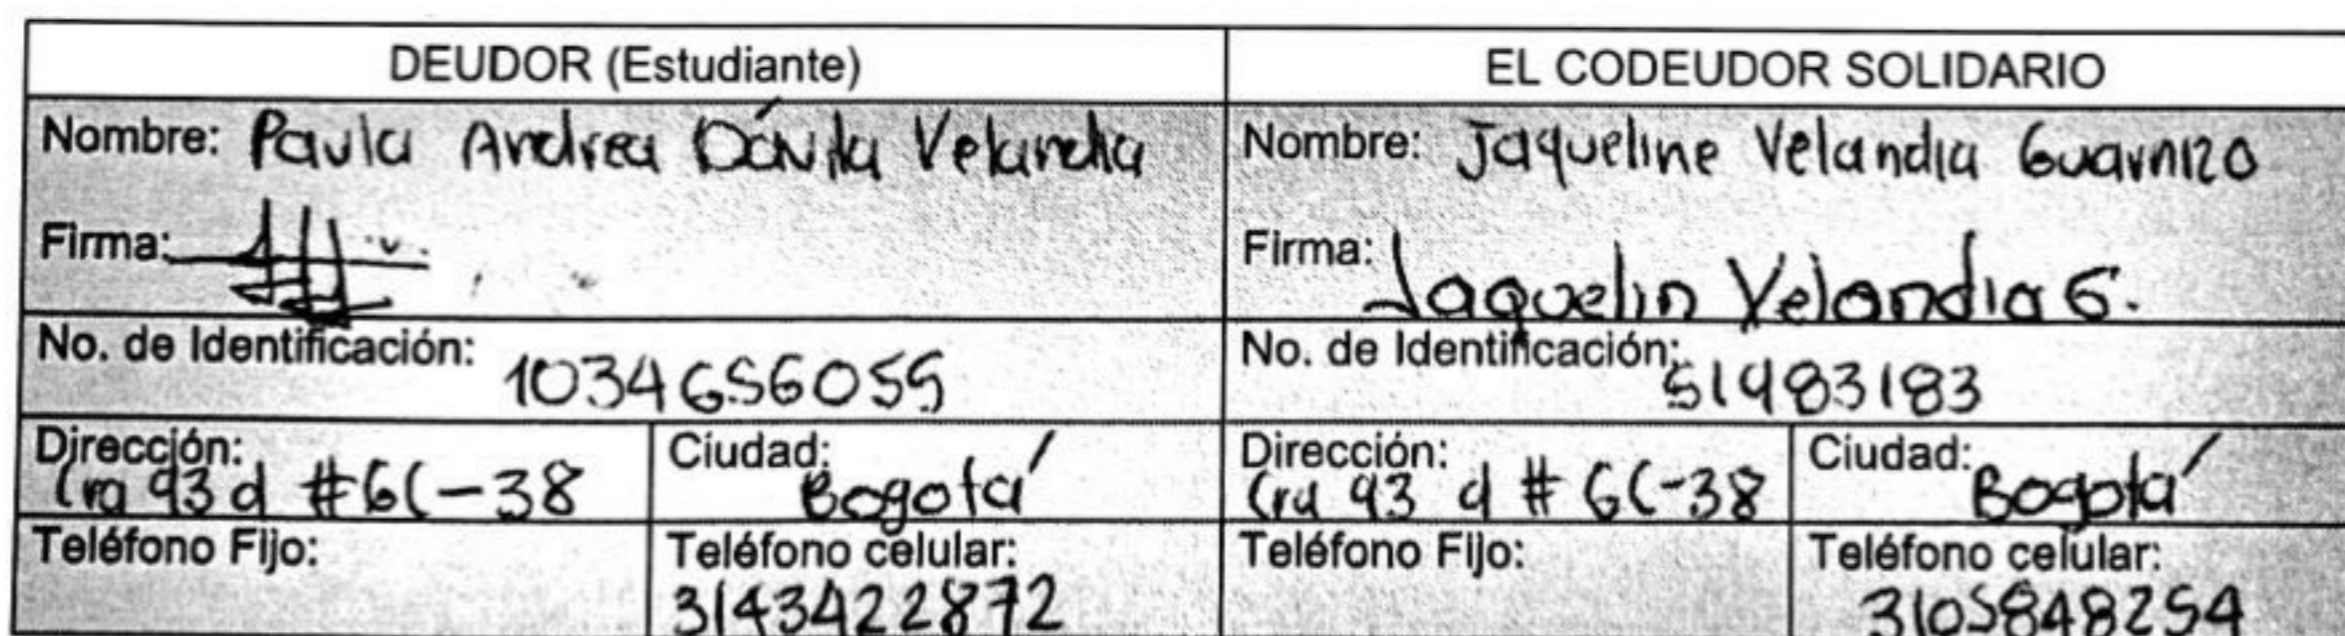 DEUDOR (Estudiante)
EL CODEUDOR SOLIDARIO
Nombre: Paula Andrea Dávila Velandia
Nombre: Jaqueline Velandia Guarnizo
Firma:
Firma: Jaquelin Velandia G.
No. de Identificación: 1034656055
No. de Identificación: 51983183
Dirección: Cra 93 d #6C-38
Ciudad: Bogotá
Dirección: Cra 93 d #6C-38
Ciudad: Bogotá
Teléfono Fijo:
Teléfono celular: 3143422872
Teléfono Fijo:
Teléfono celular: 3105848254